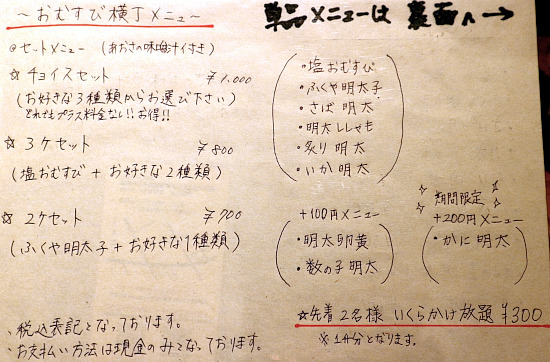 〜おむすび横丁メニュー〜
単品メニューは 裏面へ→
◎セットメニュー (あおさの味噌汁付き)
☆チョイスセット ¥1,000
(お好きな3種類からお選び下さい)
どれでもプラス料金なし!!お得!!
☆ 3ケセット ¥800
(塩おむすび + お好きな2種類)
☆ 2ケセット ¥700
(ふくや明太子 + お好きな1種類)
・塩おむすび
・ふくや明太子
・さば 明太
・明太ししゃも
・炙り 明太
・いか 明太
+100円メニュー
・明太卵黄
・数の子 明太
期間限定
+200円メニュー
・かに 明太
☆先着2名様 いくらかけ放題 ¥300
※1ケ分となります。
・税込表記となっております。
・お支払い方法は現金のみとなっております。